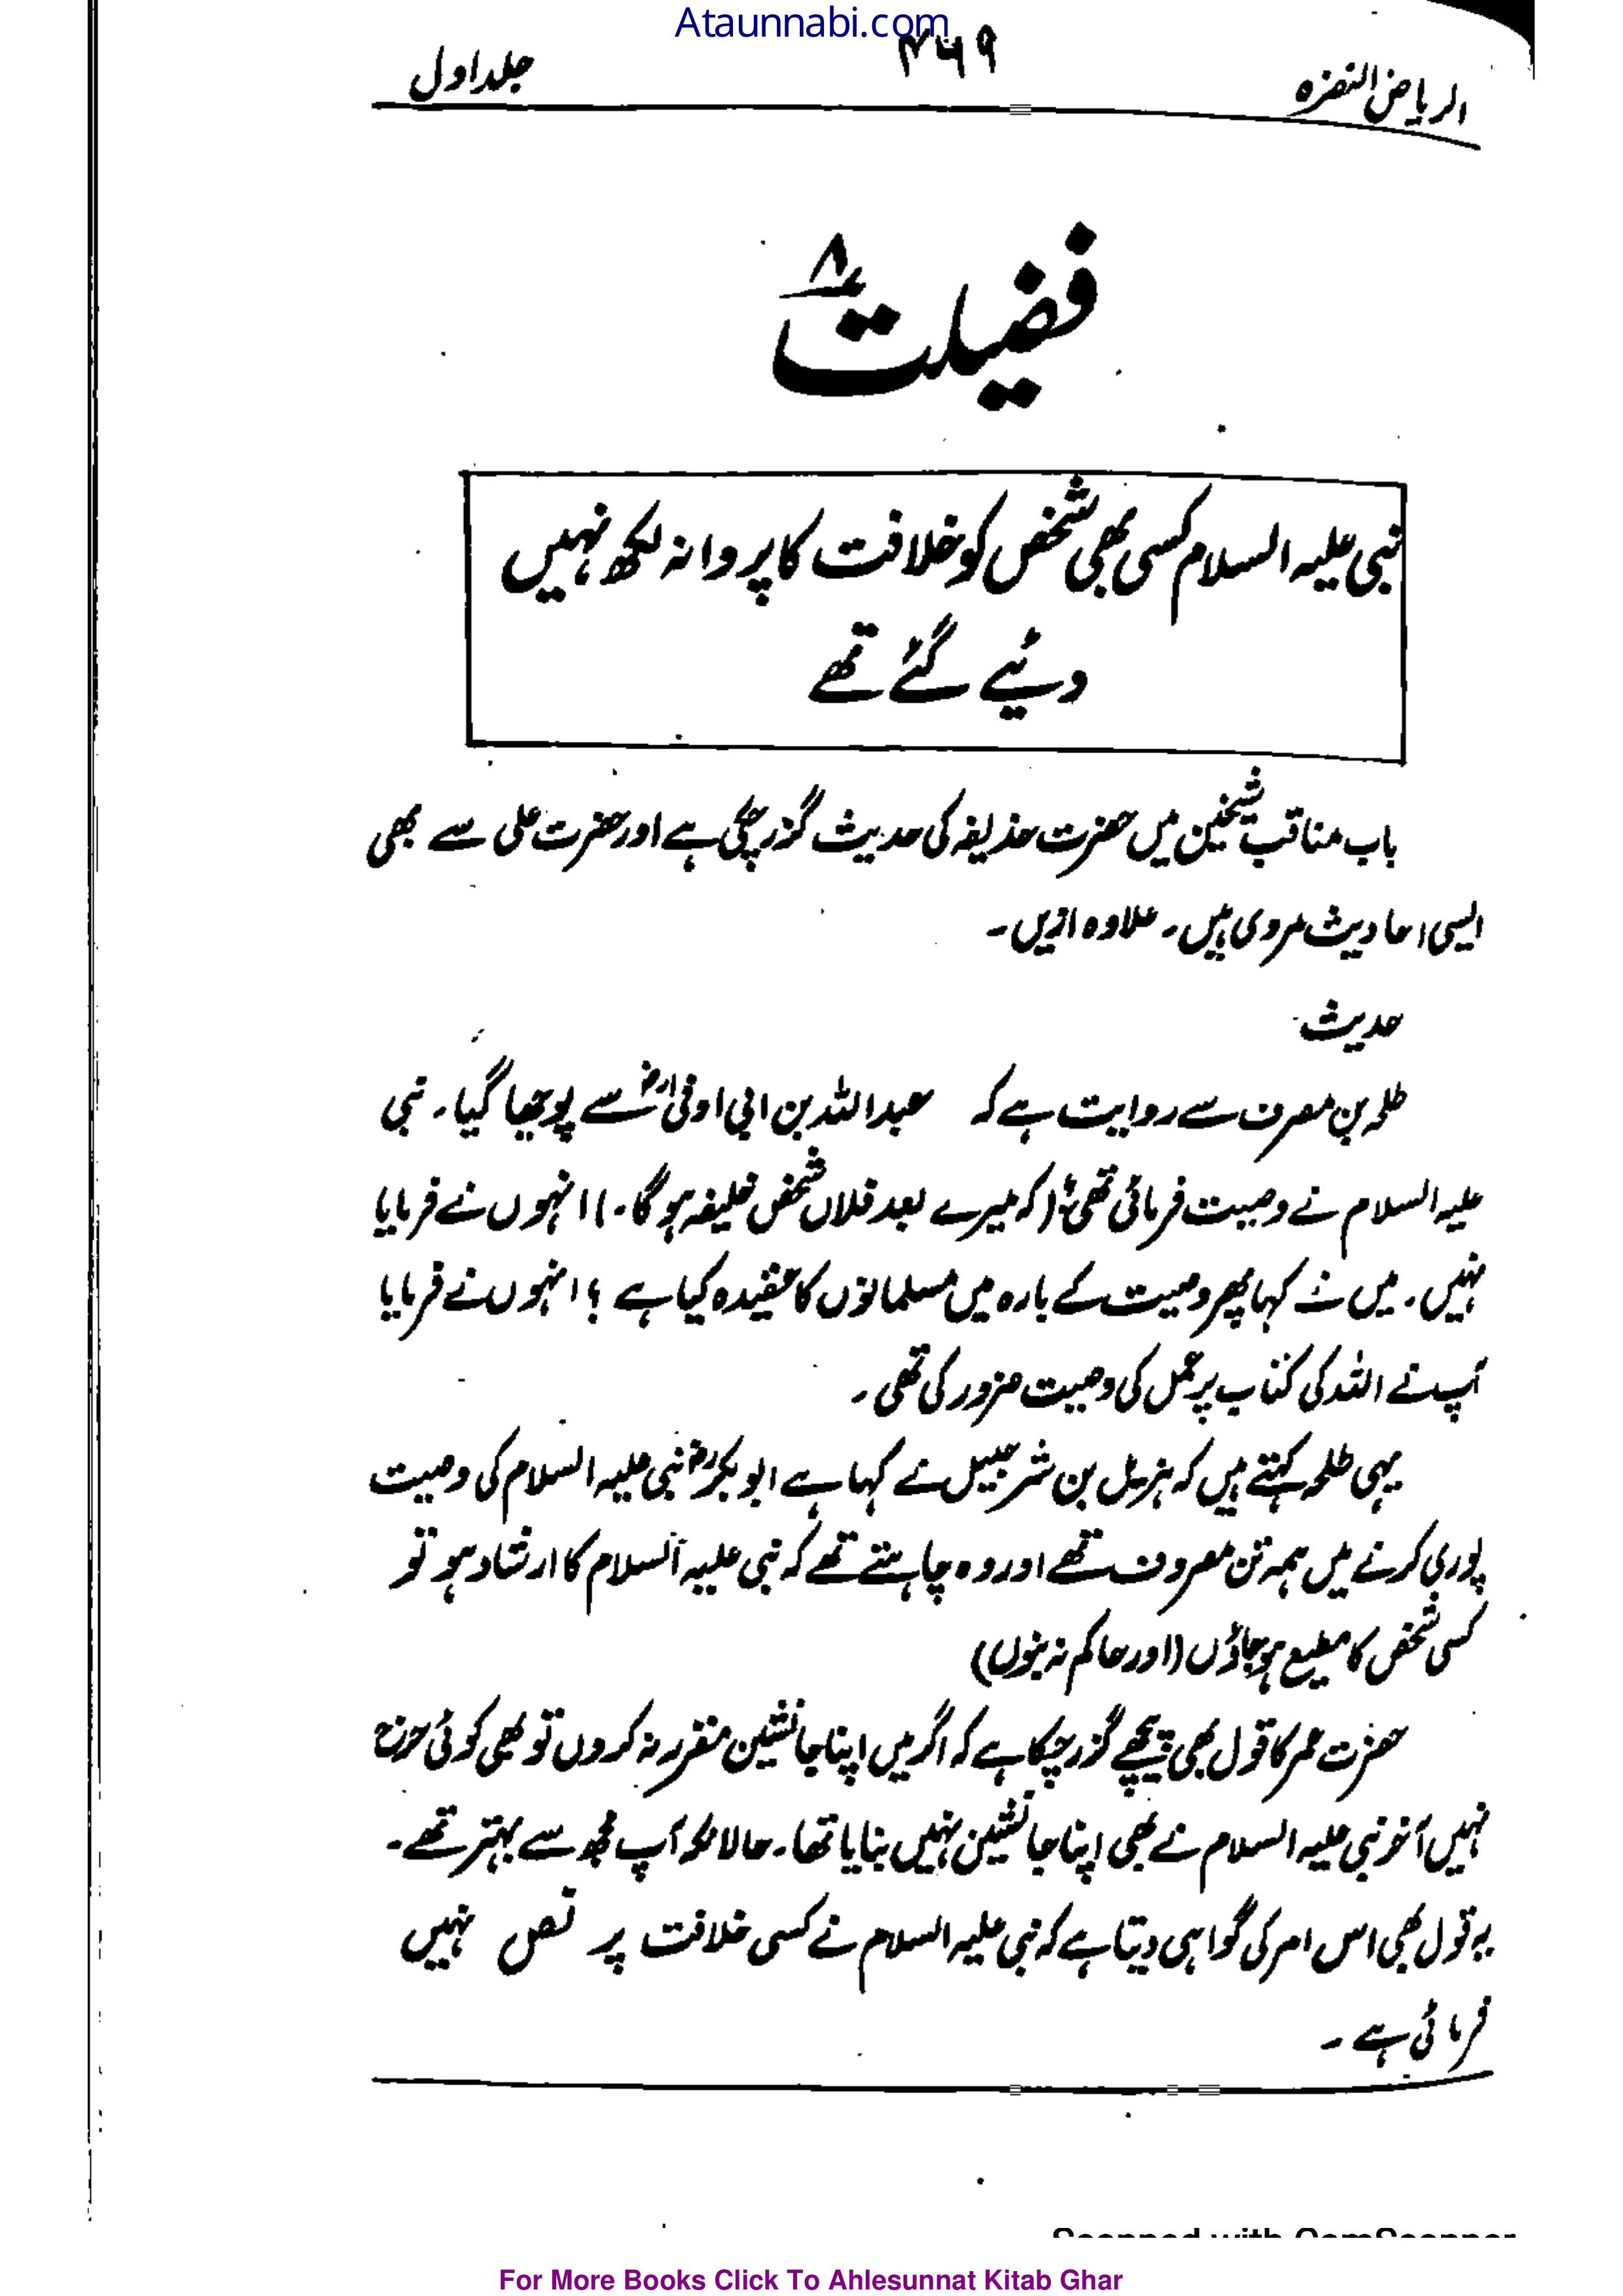 Ataunnabi.com
الریاض النضرہ ۴۶۹ جلد اول
فضیلت ۸
نبی علیہ السلام کسی بھی شخص کو خلافت کا پروانہ لکھ نہیں
دئیے گئے تھے
باب مناقب شیخین میں حضرت حذیفہ کی حدیث گزر چکی ہے اور حضرت علی سے بھی
ایسی احادیث مروی ہیں۔ علاوہ ازیں۔
حدیث
طلحہ بن مصرف سے روایت ہے کہ عبداللہ بن ابی اوفیٰ رض سے پوچھا گیا۔ نبی
علیہ السلام نے وصیت فرمائی تھی؟ (کہ میرے بعد فلاں شخص خلیفہ ہو گا۔) انہوں نے فرمایا
نہیں۔ میں نے کہا پھر وصیت کے بارہ میں مسلمانوں کا عقیدہ کیا ہے ؟ انہوں نے فرمایا
آپ نے اللہ کی کتاب پر عمل کی وصیت ضرور کی تھی۔
یہی طلحہ کہتے ہیں کہ ہزیل بن شرجیل نے کہا ہے ابوبکر رض نبی علیہ السلام کی وصیت
پوری کرنے میں ہمہ تن مصروف تھے اور وہ چاہتے تھے کہ نبی علیہ السلام کا ارشاد ہو تو
کسی شخص کا مطیع ہو جاؤں (اور حاکم نہ بنوں)
حضرت عمر کا قول بھی پیچھے گزر چکا ہے کہ اگر میں اپنا جانشین مقرر نہ کروں تو بھی کوئی حرج
نہیں آخر نبی علیہ السلام نے بھی اپنا جانشین نہیں بنایا تھا۔ حالانکہ آپ مجھ سے بہتر تھے۔
یہ قول بھی اس امر کی گواہی دیتا ہے کہ نبی علیہ السلام نے کسی خلافت پر نص نہیں
فرمائی ہے۔
Scanned with CamScanner
For More Books Click To Ahlesunnat Kitab Ghar